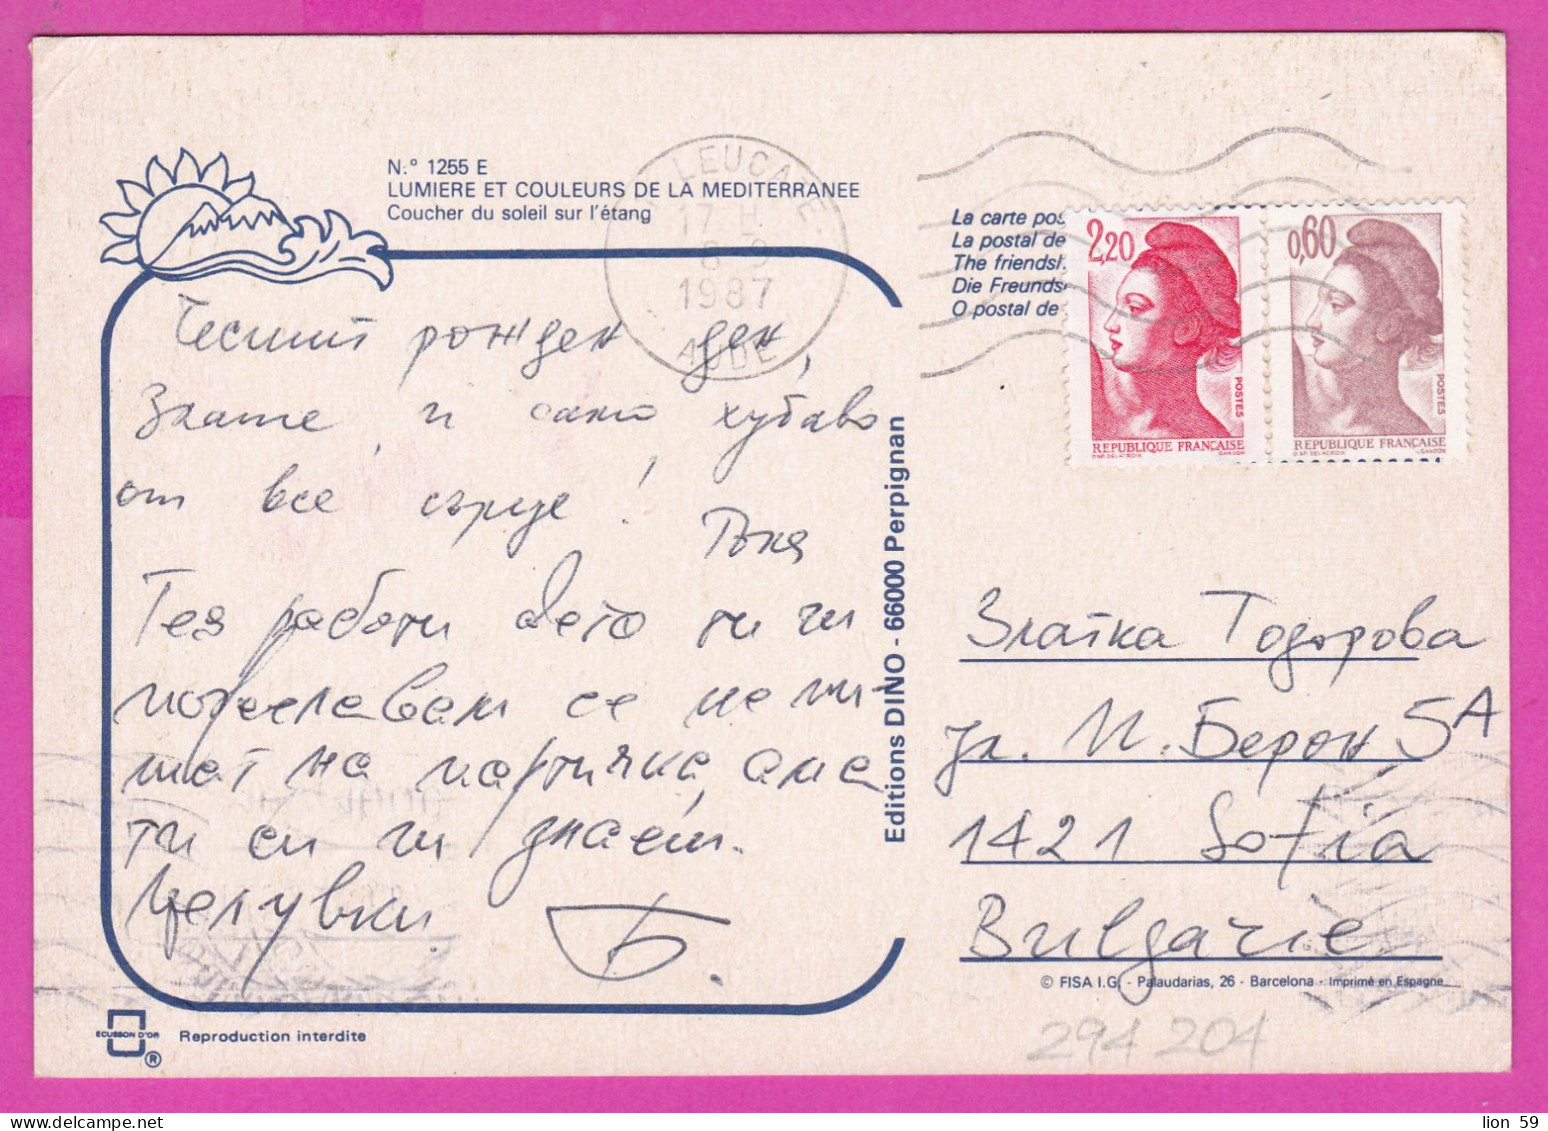 N.º 1255 E
LUMIERE ET COULEURS DE LA MEDITERRANEE
Coucher du soleil sur l'étang
LEUCATE
17 H
8-9
1987
AUDE
La carte pos
La postal de
The friendsh
Die Freunds
O postal de
2,20
POSTES
REPUBLIQUE FRANÇAISE
D'AP. DELACROIX GANDON
0,60
POSTES
REPUBLIQUE FRANÇAISE
D'AP. DELACROIX GANDON
Честит рожден ден,
Злате, и само хубаво
от все сърце!
Тези работи дето ти ги
пожелавам се не пи-
шат на картичка, ама
ти си ги знаеш.
Целувки Б.
Editions DINO - 66000 Perpignan
Златка Тодорова
ул. П. Берон 5А
1421 Sofia
Bulgarie
© FISA I.G. - Palaudarias, 26 - Barcelona - Imprimé en Espagne
ECUSSON D'OR
®
Reproduction interdite
294204
lion 59